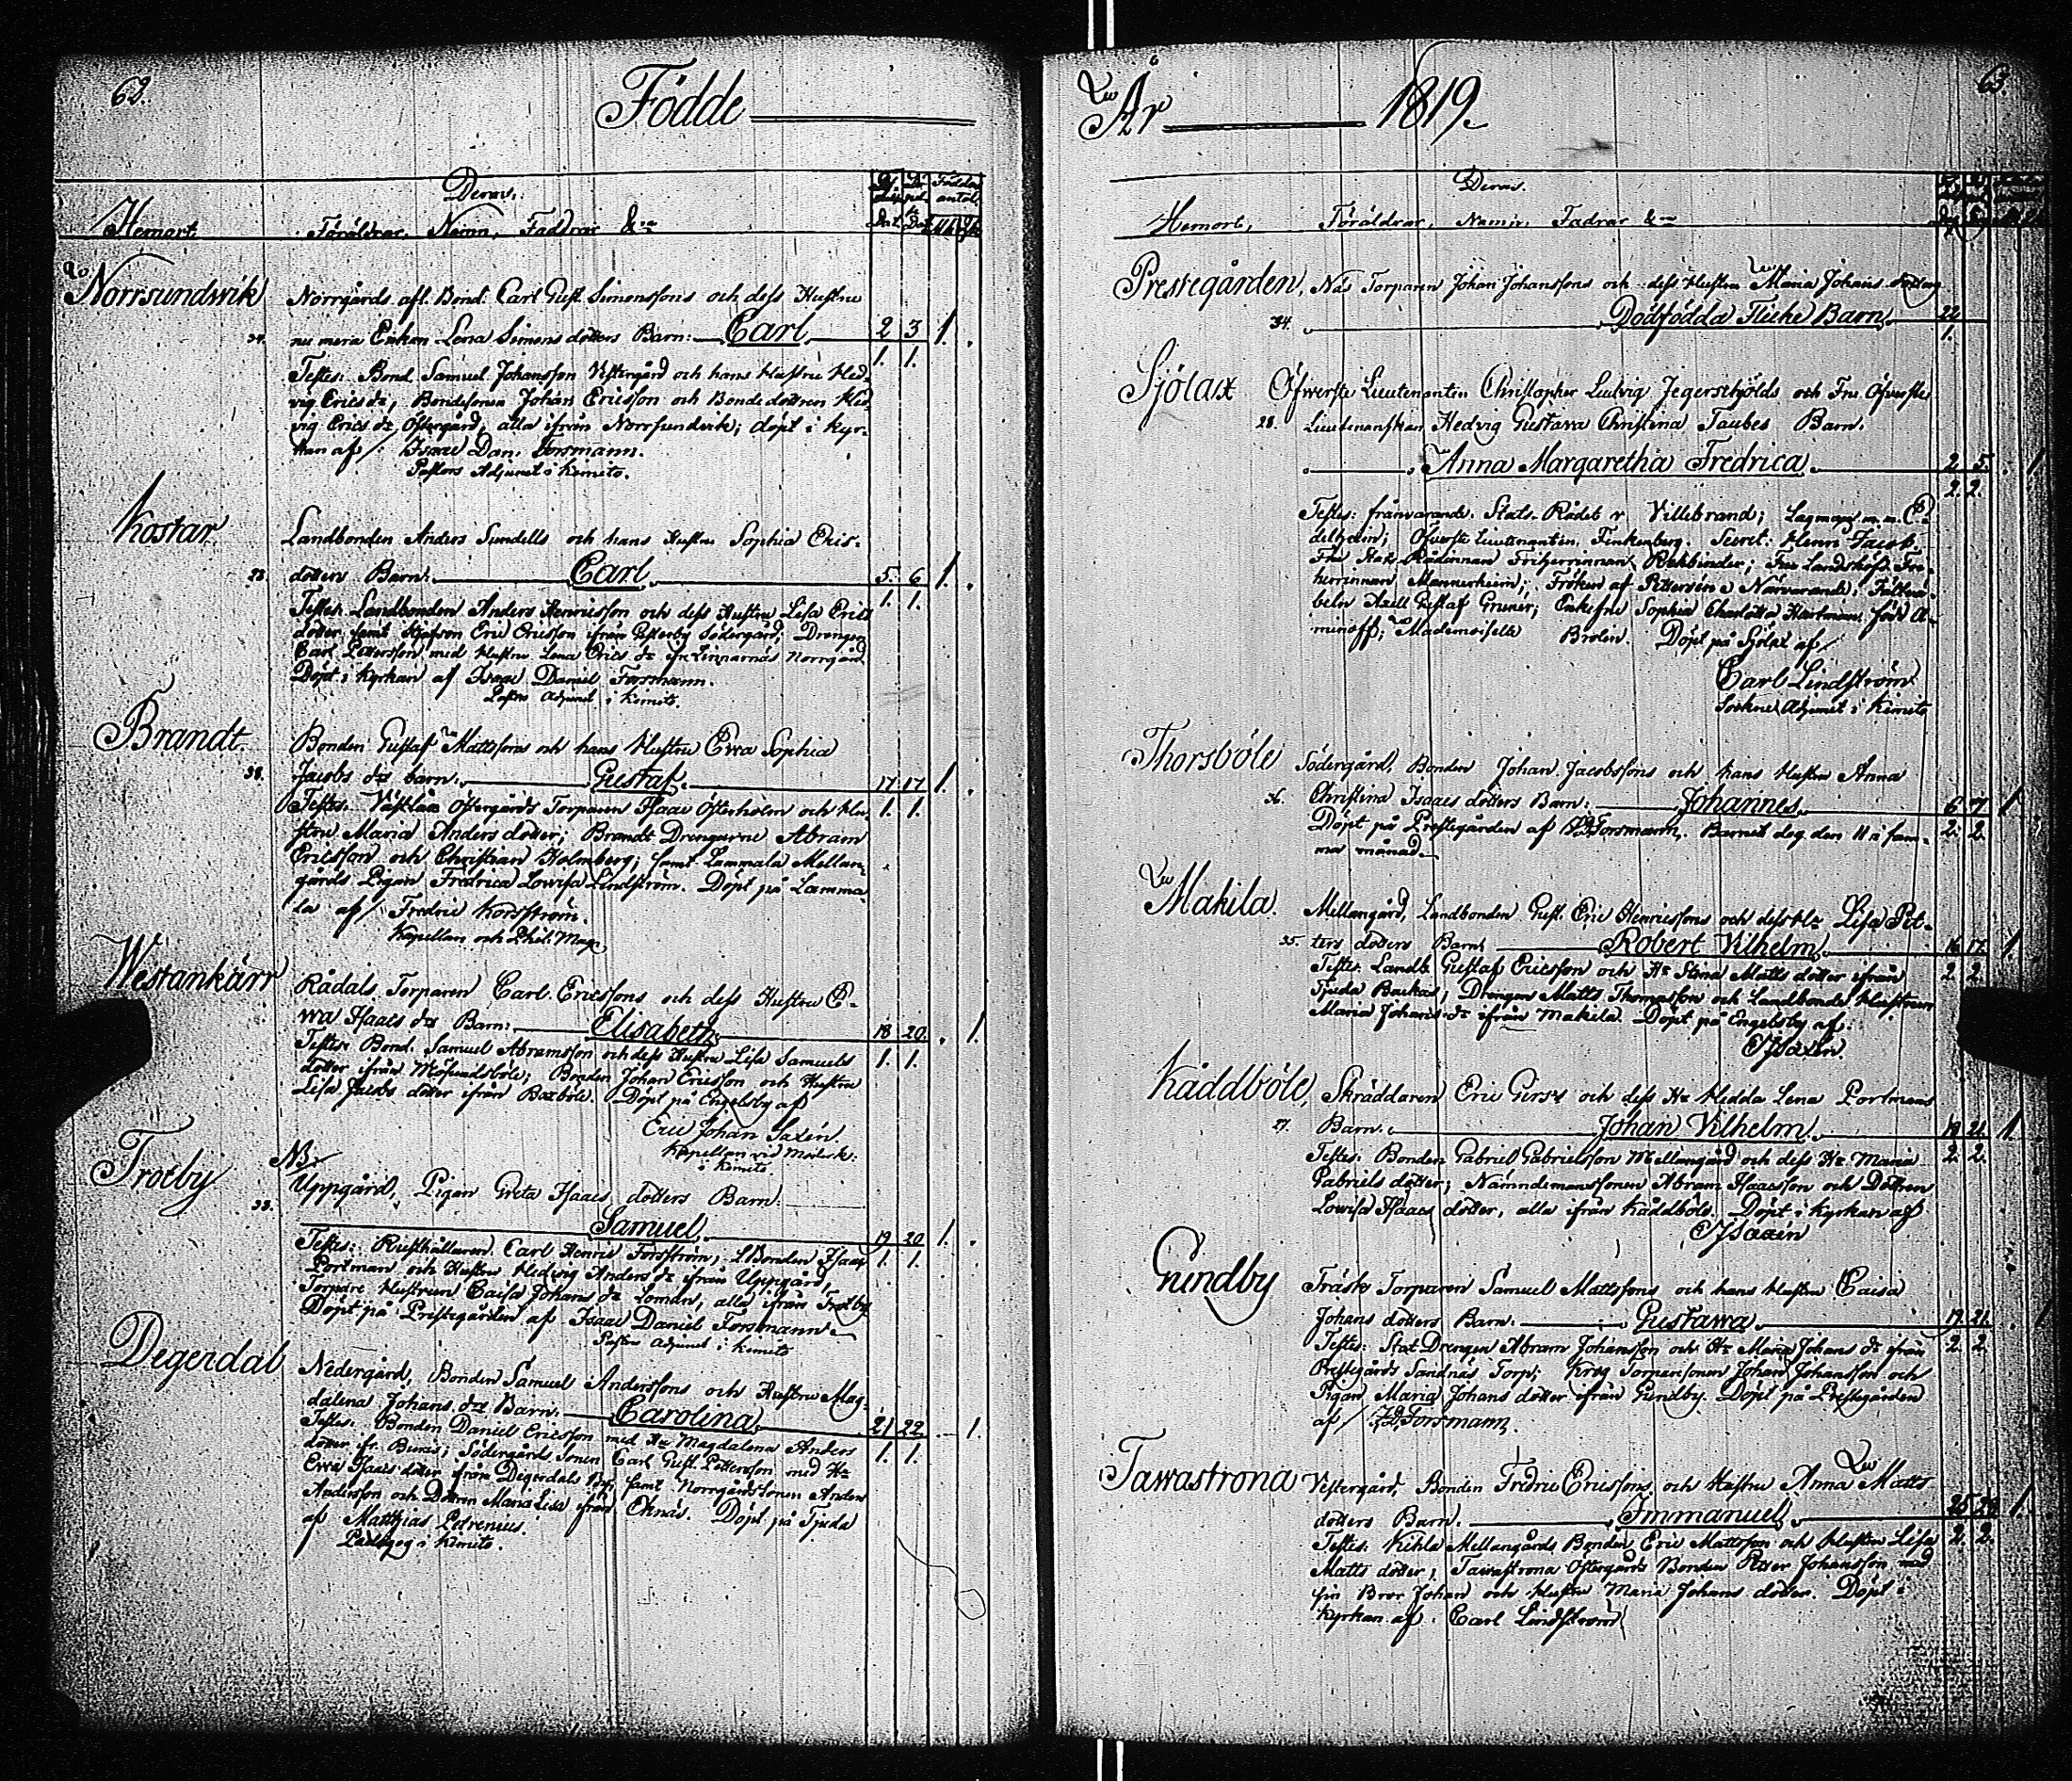 62.
Födde
Deras.
Hemort. Föräldrar, Namn, Faddrar &ra
Norrsundvik Norrgårds afl. Bond. Carl Gust. Simonssons och dess Hustru
34. nu mera Enkan Lena Simons dotters Barn: Carl 2 3 1.
1. 1.
Testes: Bond. Samuel Johansson Vestergård och hans Hustru Hed-
vig Erics dr, Bondesonen Johan Ericsson och Bondedottren Hed-
vig Erics dr Östergård, alla ifrån Norrsundvik; döpt i kyr-
kan af /: Isaac Dan. Forsmann.
Pastors Adjunct i Kimito.
Kostar Landbonden Anders Sundells och hans Hustru Sophia Erics-
28. dotters Barn: Carl 5. 6 1.
1. 1.
Testes: Landbonden Anders Henricsson och dess Hustru Lisa Erics
dotter samt Eric Ericsson ifrån Södergård; Drengen
Carl Pettersson med Hustru Lena Erics dr ifr. Linnarnäs Norrgård
Döpt i Kyrkan af Isaac Daniel Forsmann.
Pastors Adjunct i Kimito.
Brandt. Bonden Gustaf Mattssons och hans Hustru Ewa Sophia
38. Jacobs drs barn: Gustaf. 17 17 1.
Testes: Västlax Östergårds Torparen Isaac Österholm och Hu- 1. 1.
stru Maria Anders dotter; Brandt Drengarne Abram
Ericsson och Christian Holmberg; samt Lammala Mellan-
gårds Pigan Fredrica Lowisa Lindström. Döpt på Lamma-
la af / Fredric Korsström.
Kapellan och Phil. Mag.
Westankärr Rådals Torparen Carl Ericssons och dess Hustru E-
wa Isaacs drs Barn: Elisabeth 18 20. 1.
Testes: Bond. Samuel Abramsson och dess Hustru Lisa Samuels 1. 1.
dotter ifrån Mosundsböle; Bonden Johan Ericsson och Hustru
Lisa Jacobs dotter ifrån Baxböle. Döpt på Engelsby af
Eric Johan Saxén.
Kapellan vid Moderk:
i Kimito
Trotby NB:
Uppgård, Pigan Greta Isaacs dotters Barn.
33. Samuel. 19 20 1.
Testes: Rusthållaren Carl Henric Forsström; L Bonden Isaac 1. 1.
Portman och Hustru Hedvig Anders dr ifrån Uppgård,
Torpare Hustrun Caisa Johans dr Loman, alla ifrån Trotby
Döpt på Prestegården af Isaac Daniel Forsmann
Pastors Adjunct i Kimito
Degerdal Nedergård, Bonden Samuel Anderssons och Hustru Mag-
dalena Johans drs Barn: Carolina 21 22 1.
Testes: Bonden Daniel Ericsson med Hu Magdalena Anders 1. 1.
dotter fr. ; Södergårds Sonen Carl Gust. Pettersson med Hu
Ewa Isaacs dotter ifrån Degerdals samt Norrgårdssonen Anders
Andersson och Dottren Maria Lisa ifrån Eknäs. Döpt på Tjuda
af Matthias Petrenius.
Pædagog i Kimito.
63.
År 1819.
Deras.
Hemort, Föräldrar, Namn, Fadrar &ra
Prestegården, Näs Torparen Johan Johanssons och dess Hustru Maria Johans
34. Dödfödda Flicke Barn 22
1.
Sjölax Öfwerste Lieutenanten Christopher Ludvig Jegerschjölds och Fru Öfverste
28. Lieutenantskan Hedvig Gustava Christina Taubes Barn.
Anna Margaretha Fredrica 2. 5. 1.
2. 2.
Testes: frånvarande. Stats-Rådet v Villebrand; Lagman m. m. E-
delheim; Öfverste Lieutenanten Finkenberg. Secret: Henr: Jacob
Fru Stats Rådinnan Friherrinnan Rehbinder; Fru Landshöfd. Fri-
herrinnan Mannerheim; Fröken af Petersén; Närvarande: Fältvä-
beln Axell Gustaf Gruner; Enkefru Sophia Charlotta Hartman, född A-
minoff; Mademoiselle Brolin. Döpt på Sjölax af /
Carl Lindström
Sockne Adjunct i Kimito
Thorsböle Södergård, Bonden Johan Jacobssons och hans Hustru Anna
36. Christina Isaacs dotters Barn: Johannes 6 7 1
Döpt på Prestegården af I D Forsmann. Barnet dog den 11 i sam- 2. 2.
ma månad.
Makila. Mellangård, Landbonden Gust. Eric Henricssons och dess Hu Lisa Pet-
35. ters dotters Barn Robert Vilhelm 16 17 1.
Testes: Landb. Gustaf Ericsson och Hu Stina Matts dotter ifrån 2. 2.
Tjuda Backas; Drengen Matts Thomasson och Landbonde Hustrun
Maria Johans dr ifrån Makila. Döpt på Engelsby af
E J Saxén
Kåddböle, Skräddaren Eric Girss och dess Hu Hedda Lena Portmans
27. Barn. Johan Vilhelm 19 21 1.
Testes: Bonden Gabriel Gabrielsson Mellangård och dess Hu Maria 2. 2.
Gabriels dotter; Nämndemanssonen Abram Isaacsson och Dottren
Lowisa Isaacs dotter, alla ifrån Kåddböle. Döpt i Kyrkan af
E J Saxén
Gundby Träsk Torparen Samuel Mattssons och hans Hustru Caisa
Johans dotters Barn. Gustawa 19. 21. 1
Testes: Stat Drengen Abram Johansson och Hu Maria Johans dr ifrån 2. 2.
Prestegårds Sandnäs Torp; Krog Torparesonen Johan Johansson och
Pigan Maria Johans dotter ifrån Gundby. Döpt på Prestegården
af / I D Forsmann.
Tawastrona Vestergård, Bonden Fredric Ericssons och Hustru Anna Matts
dotters Barn. Immanuel 25 1.
Testes: Kihla Mellangårds Bonden Eric Mattsson och Hustru Lisa 2. 2.
Matts dotter; Tawastrona Östergårds Bonden Petter Johansson med
sin Bror Johan och Hustru Maria Johans dotter. Döpt i
Kyrkan af Carl Lindström